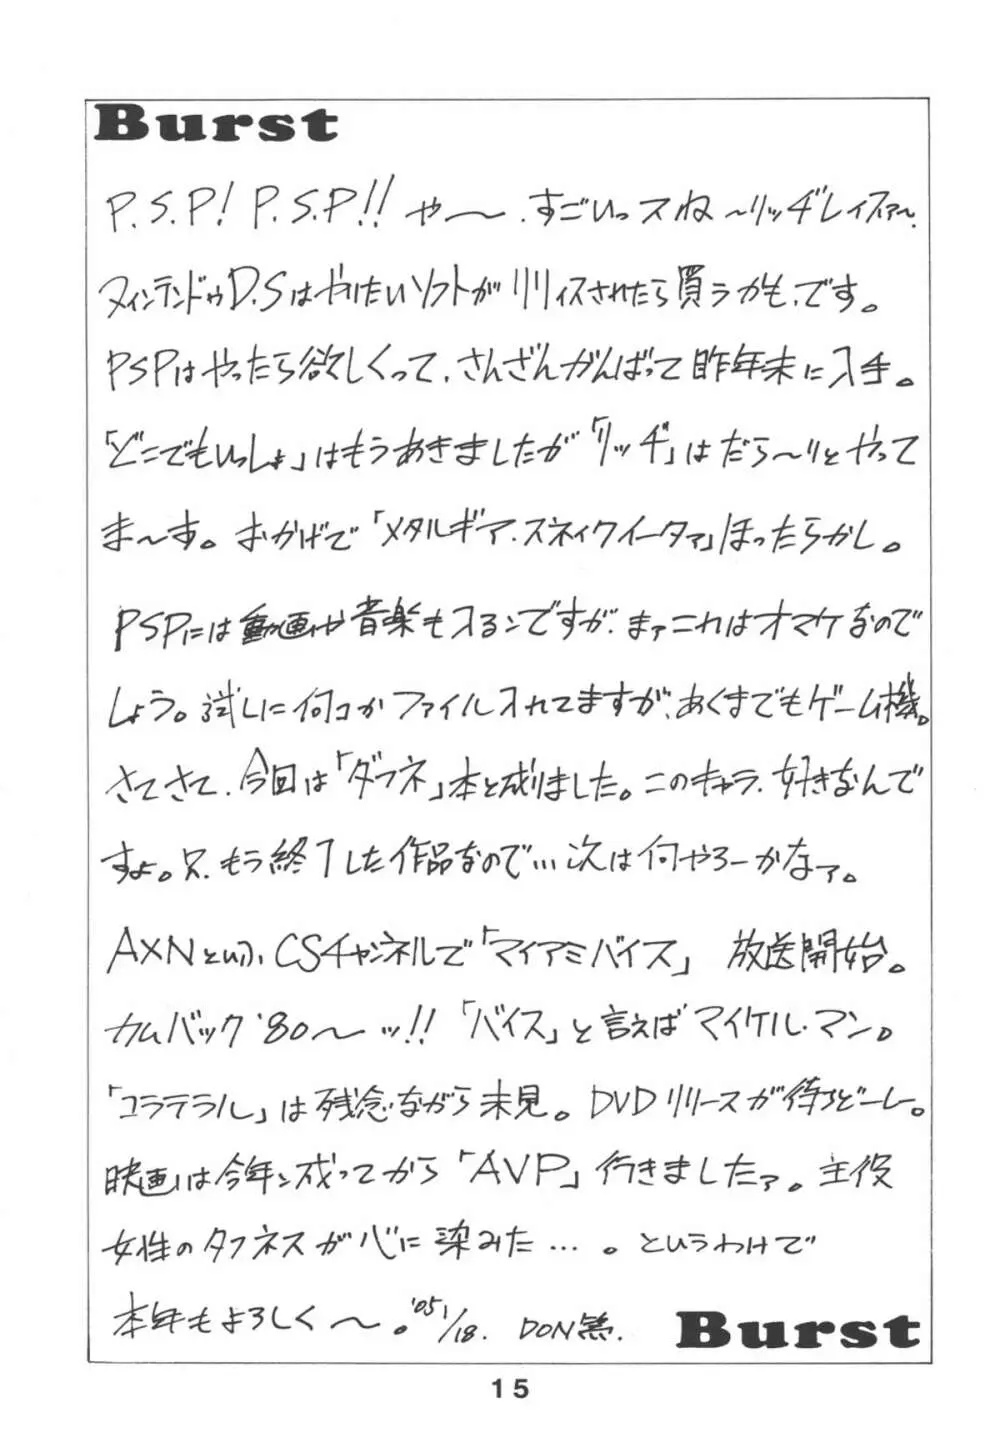 Burst
P.S.P! P.S.P!! や〜、すごいっスね〜リッヂレイスァ〜、
ヌィンテンドゥD.Sはやりたいソフトがリリィスされたら買うかも、です。
PSPはやったら欲しくって、さんざんがんばって昨年末に入手。
「どこでもいっしょ」はもうあきましたが「リッヂ」はだら〜りとやって
ま〜す。おかげで「メタルギア・スネイクイータァ」ほったらかし。
PSPには動画や音楽も入るンですが、まァこれはオマケなので
しょう。試しに何コかファイル入れてますが、あくまでもゲーム機。
さてさて、今回は「ダフネ」本と成りました。このキャラ、好きなんで
すよ。只、もう終了した作品なので…次は何やろーかなァ。
AXNという、CSチャンネルで「マイアミバイス」 放送開始。
カムバック'80〜ッ!! 「バイス」と言えばマイケル・マン。
「コラテラル」は残念ながら未見。DVDリリースが待ちどーし。
映画は今年ン成ってから「AVP」行きましたァ。主役
女性のタフネスが心に染みた…。というわけで
本年もよろしく〜。'05 1/18. DON繁.
Burst
15